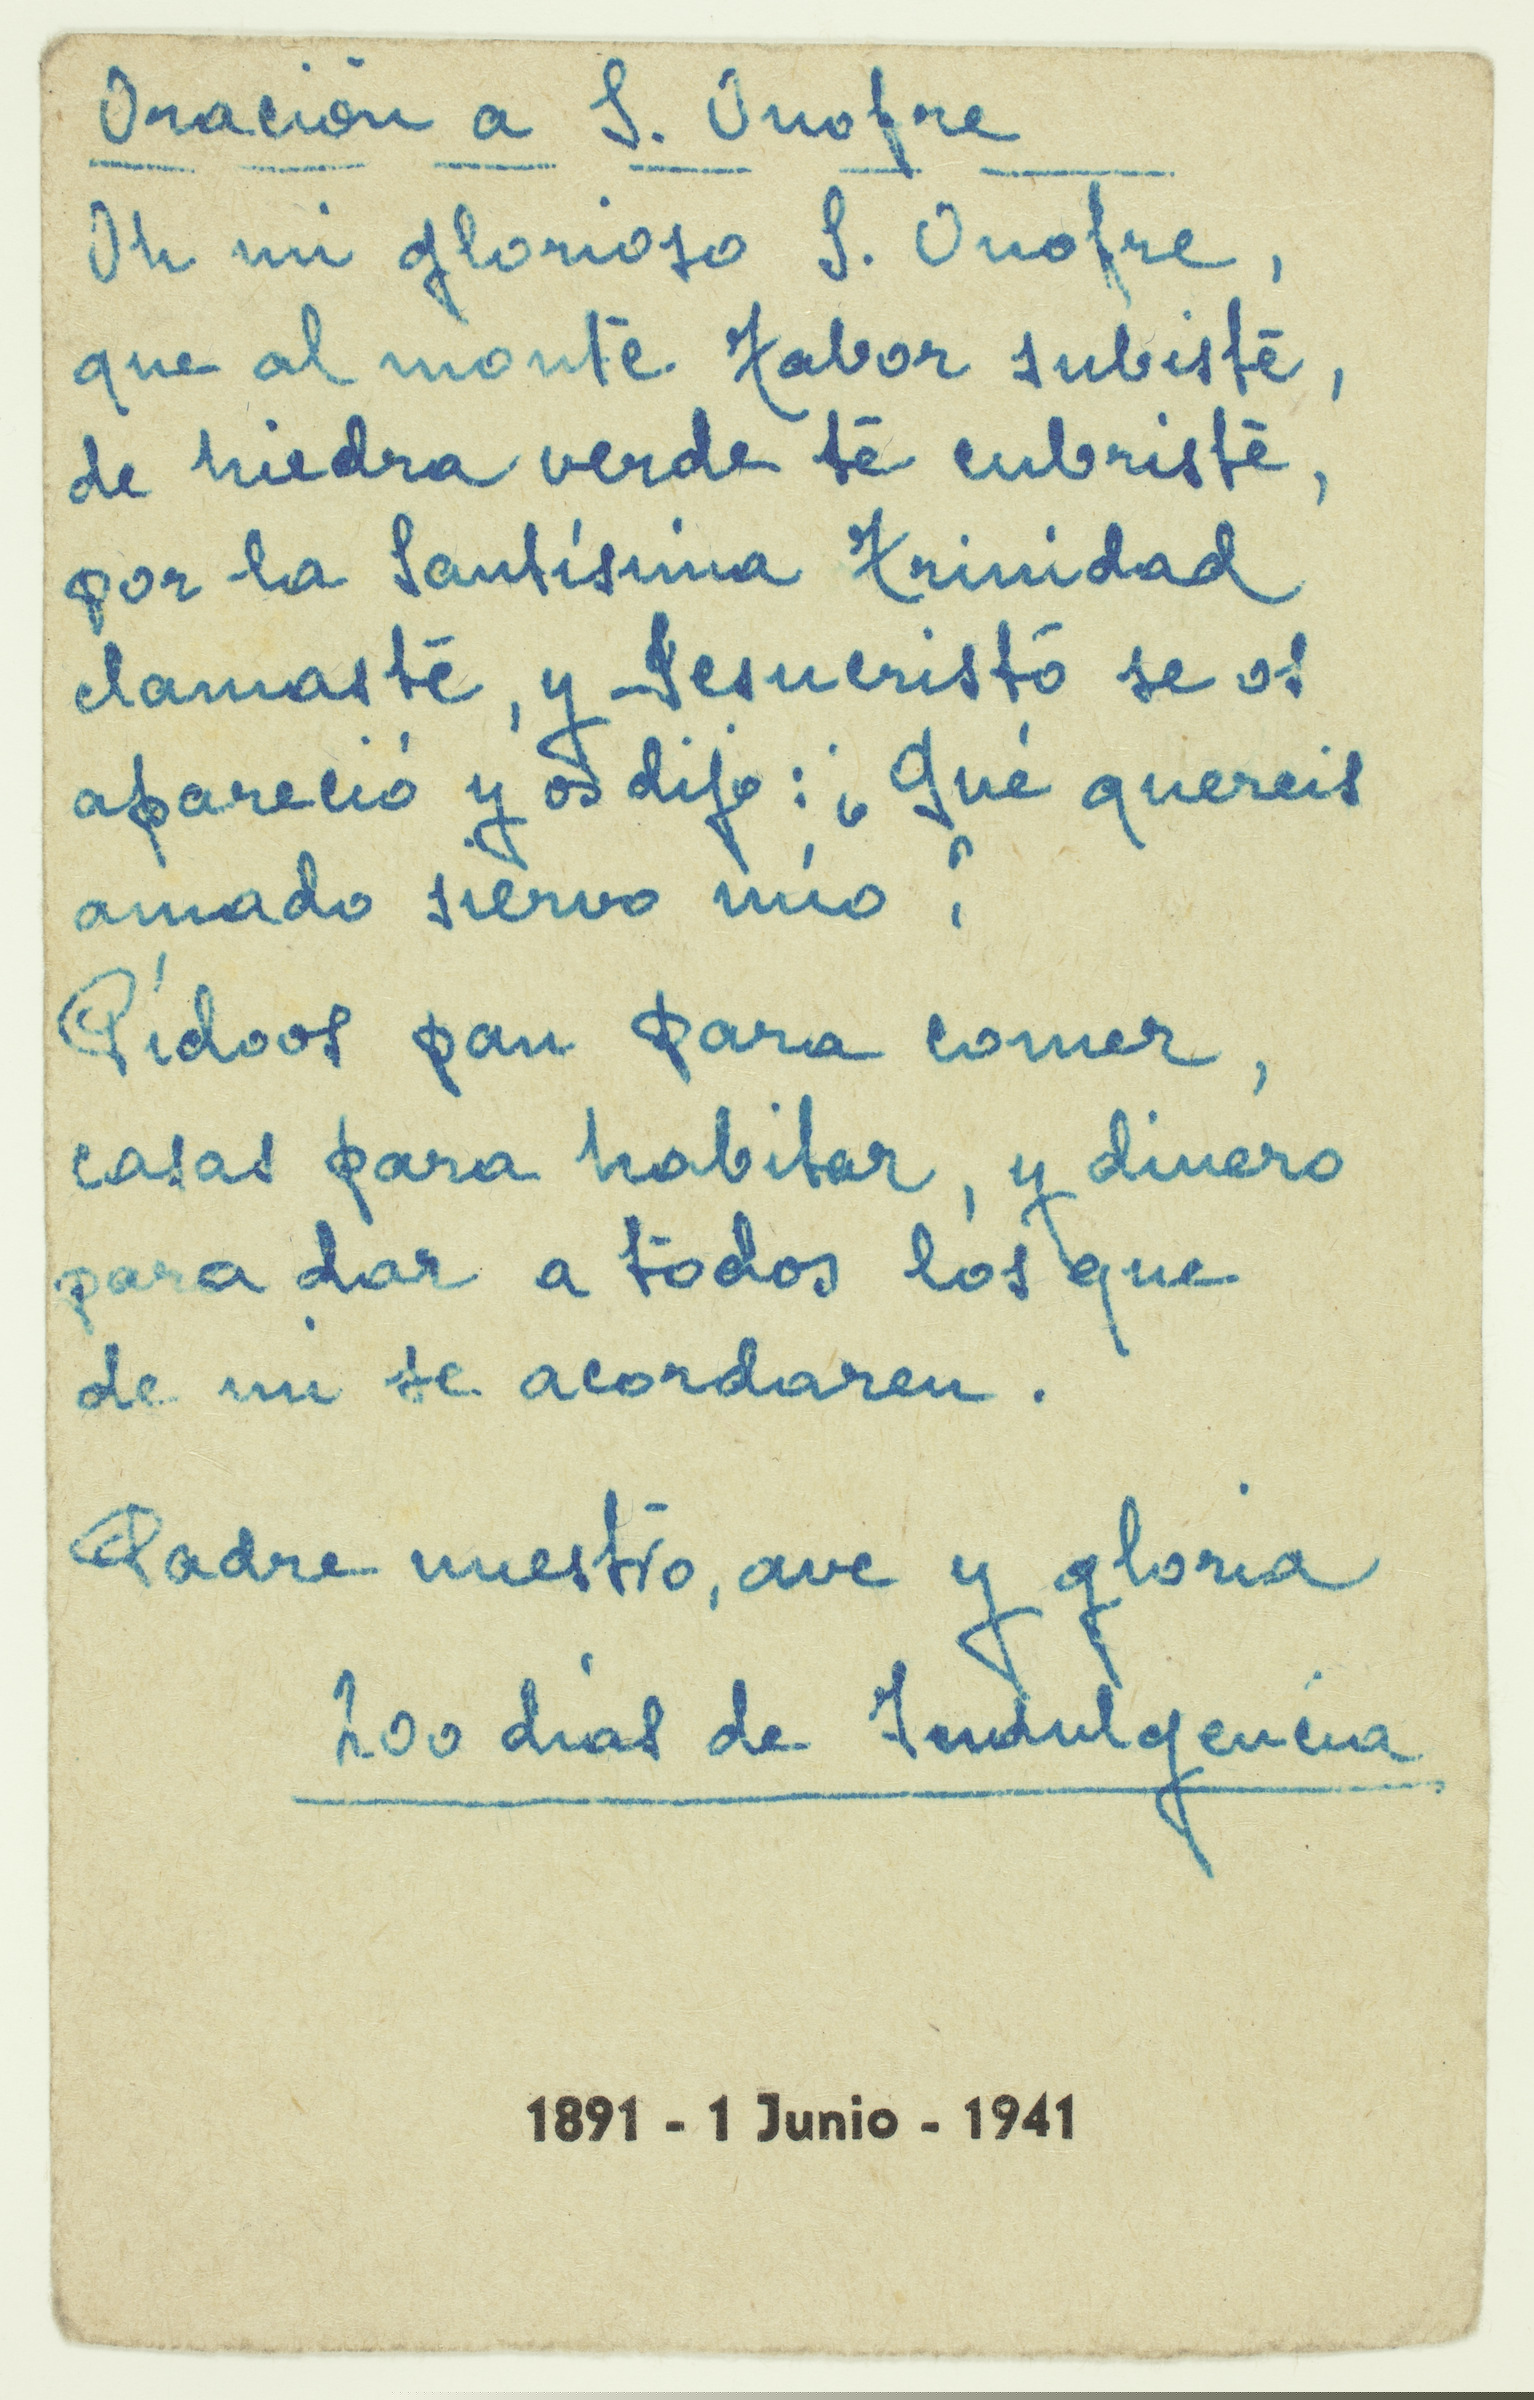 Oración a S. Onofre
Oh mi glorioso S. Onofre,
que al monte Tabor subiste,
de hiedra verde te cubriste,
por la Santísima Trinidad
clamaste, y Jesucristo se os
apareció y os dijo: ¿Qué quereis
amado siervo mío?
Pídoos pan para comer,
casas para habitar, y dinero
para dar a todos los que
de mi se acordaren.
Padre nuestro, ave y gloria
200 días de Indulgencia
1891 - 1 Junio - 1941